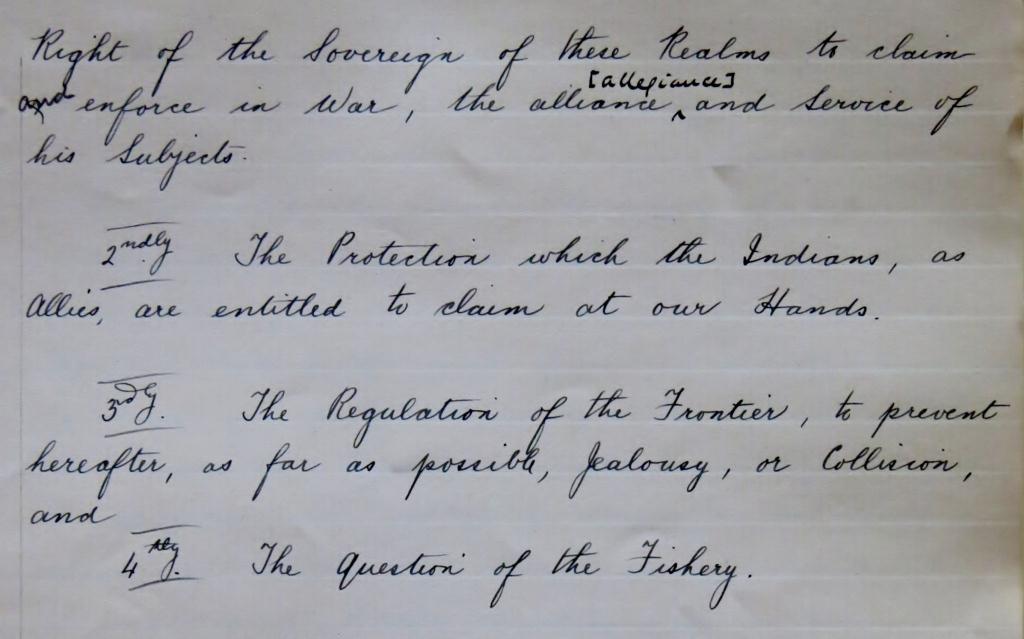 Right of the Sovereign of these Realms to claim
and enforce in War, the alliance [allegiance] and Service of
his Subjects.
2ndly The Protection which the Indians, as
Allies, are entitled to claim at our Hands.
3rdly. The Regulation of the Frontier, to prevent
hereafter, as far as possible, Jealousy, or Collision,
and
4thly. The Question of the Fishery.